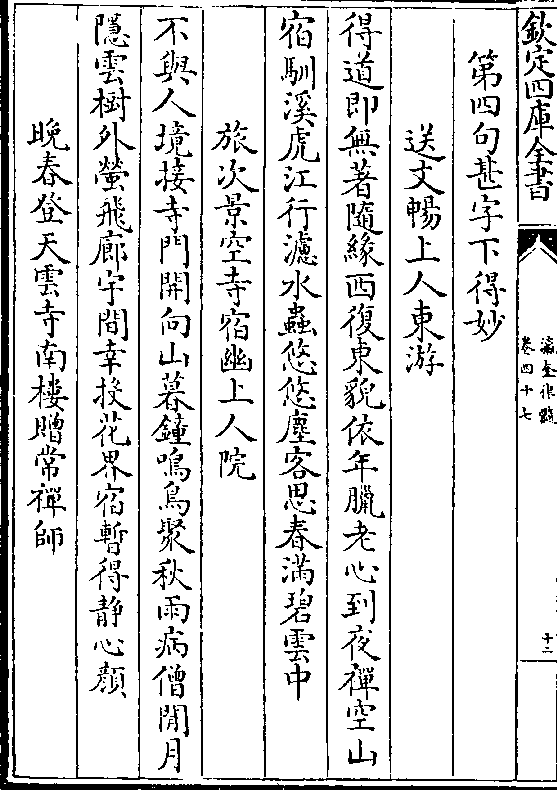 欽定四庫全書
瀛奎律髓
卷四十七
第四句甚字下得妙
送文暢上人東游
得道即無著隨緣西復東貌依年臘老心到夜禪空山
宿馴溪虎江行濾水蟲悠悠塵客思春滿碧雲中
旅次景空寺宿幽上人院
不與人境接寺門開向山暮鐘鳴鳥聚秋雨病僧閒月
隱雲樹外螢飛廊宇間幸投花界宿暫得静心顔
晚春登天雲寺南樓贈常禪師